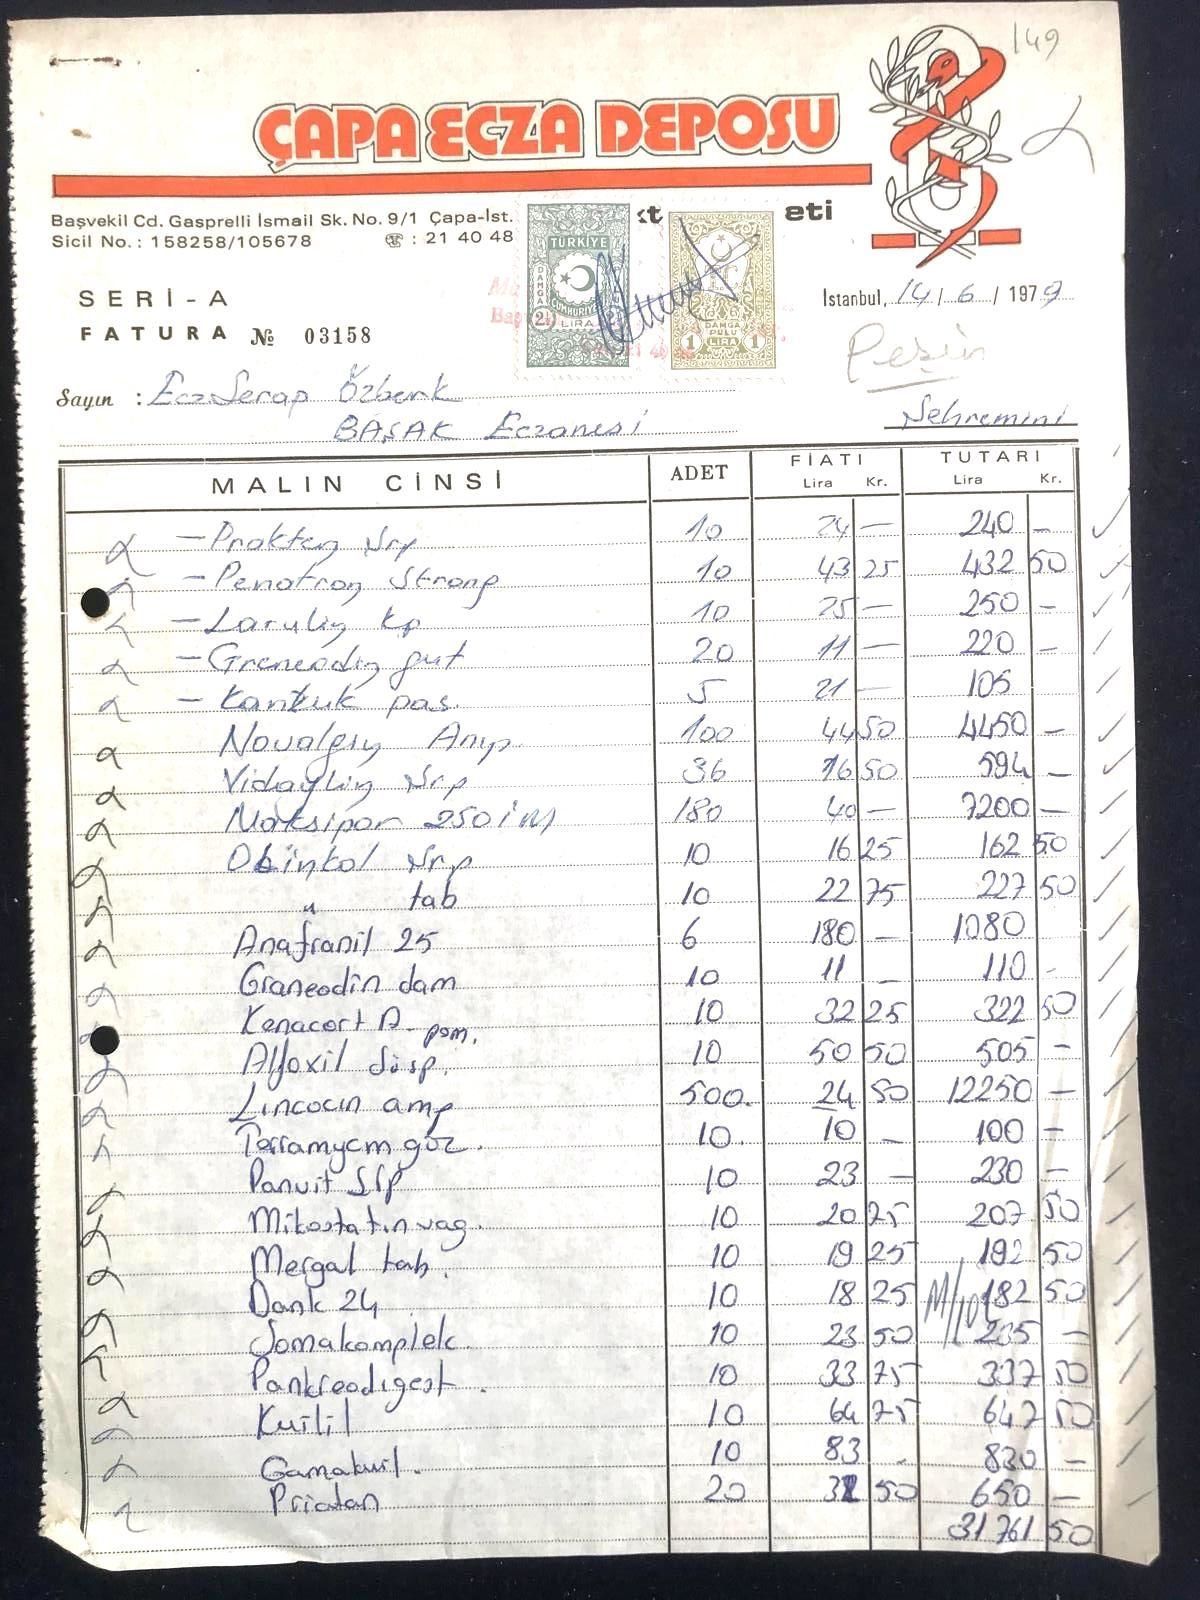 149
ÇAPA ECZA DEPOSU
Başvekil Cd. Gasprelli İsmail Sk. No. 9/1 Çapa-İst.
kt eti
Sicil No. : 158258/105678 ☏ : 21 40 48
TÜRKİYE
CUMHURİYETİ
DAMGA
LİRA
DAMGA PULU
1 LİRA 1
SERİ - A
İstanbul, 14 / 6 / 1979
FATURA № 03158
Peşin
Sayın : Ecz. Serap Özberk
BAŞAK Eczanesi
Şehremini
MALIN CİNSİ ADET FİATI Lira Kr. TUTARI Lira Kr.
— Prakten Şrp 10 24 — 240 —
— Penotran Strong 10 43 25 432 50
— Larulin Kp 10 25 — 250 —
— Graneodin gut 20 11 — 220 —
— Kanzuk pas. 5 21 — 105
Novalgin Amp. 100 44 50 4450 —
Vidaylin Şrp 36 16 50 594 —
Maksipor 250 İM 180 40 — 7200 —
Obinkol Şrp 10 16 25 162 50
" tab 10 22 75 227 50
Anafranil 25 6 180 — 1080
Graneodin dam 10 11 — 110 -
Kenacort A. pom. 10 32 25 322 50
Alfoxil Süsp. 10 50 50 505 —
Lincocin amp 500. 24 50 12250 —
Terramycin göz. 10. 10 — 100 —
Panvit Şrp 10 23 — 230 —
Mikostatin vag. 10 20 75 207 50
Mergal tab. 10 19 25 192 50
Dank 24 10 18 25 182 50
Somakomplek. 10 23 50 235 —
Pankreodigest. 10 33 75 337 50
Kuilil 10 64 75 647 50
Gamakuil. 10 83 . 830 —
Priatan 20 32 50 650 —
31761 50